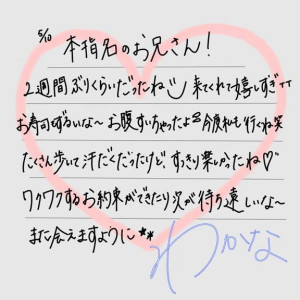 5/10
本指名のお兄さん！
2週間ぶりくらいだったね 来てくれて嬉しすぎTT
お寿司ずるいな〜 お腹すいちゃったよ 今度私も行くね笑
たくさん歩いて汗だくだったけど、すっきり楽しかったね♡
ワクワクするお約束ができたり次が待ち遠しいな〜
また会えますように★*
わかな